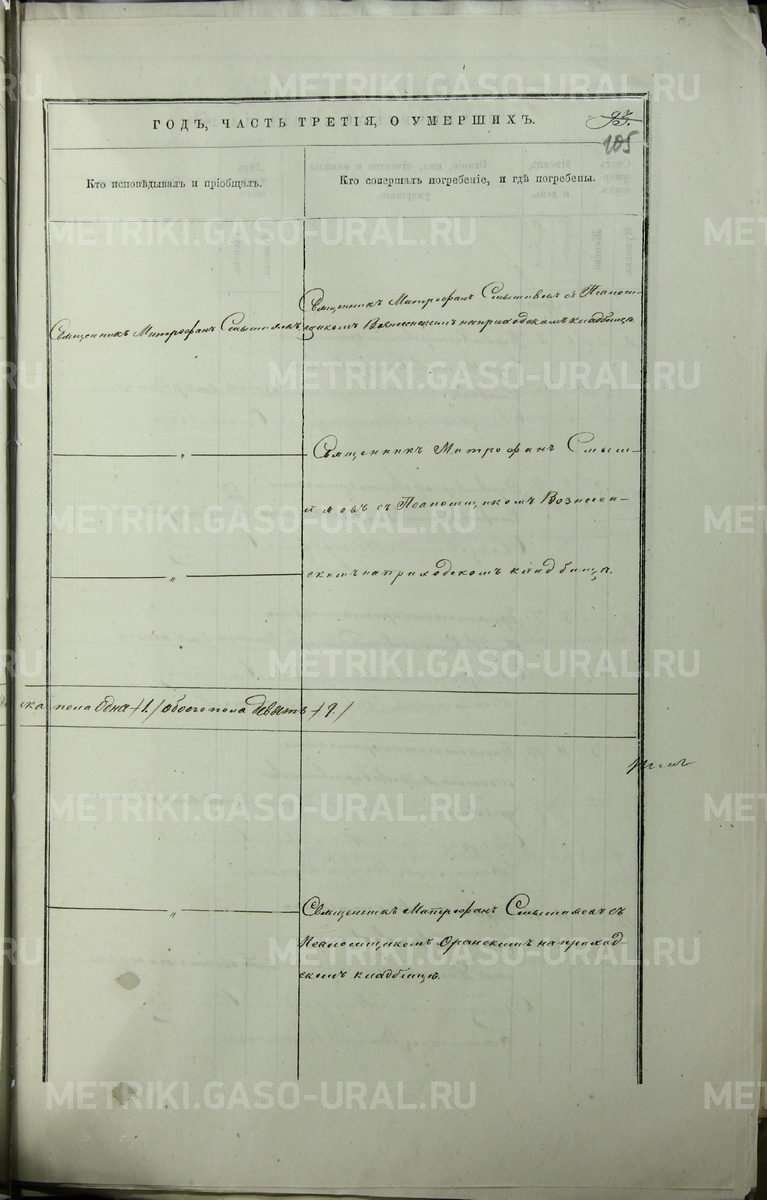 ГОДЪ, ЧАСТЬ ТРЕТІЯ, О УМЕРШИХЪ.
93.
105
Кто исповѣдывалъ и пріобщалъ.
Кто совершалъ погребеніе, и гдѣ погребены.
Священникъ Митрофанъ Смышляевъ
Священникъ Митрофанъ Смышляевъ съ Псаломщикомъ Вознесенскимъ на приходскомъ кладбищѣ.
— „ —
Священникъ Митрофанъ Смыш-
ляевъ съ Псаломщикомъ Вознесен-
— „ —
скимъ на приходскомъ кладбищѣ.
ска пола одна /1./ обоего пола девять /9./
— „ —
Священникъ Митрофанъ Смышляевъ съ
Псаломщикомъ Оранскимъ на приход-
скомъ кладбищѣ.
METRIKI.GASO-URAL.RU